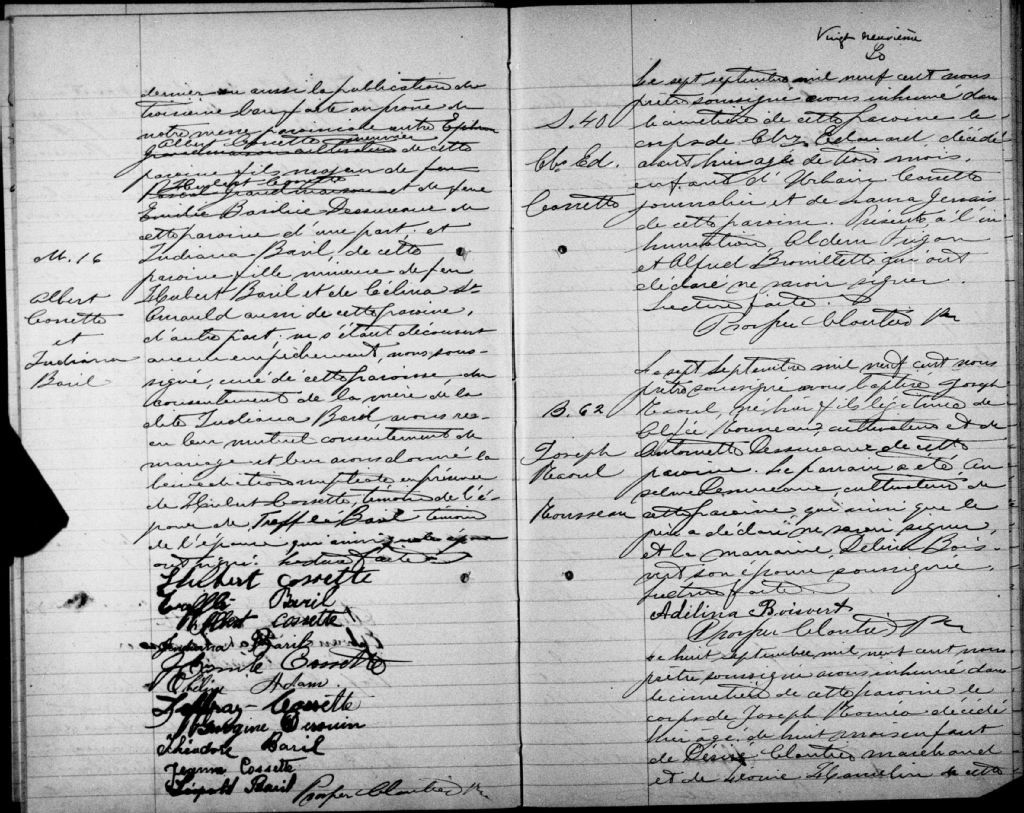 dernier ou aussi la publication du
troisième ban faite au prône de
notre messe paroissiale entre Ephrem
Albert Cossette
de cette
paroisse fils majeur de feu
Hubert Cossette et de feue
Emilie Basilice Dessureaux de
cette paroisse d'une part; et
M. 16
Indiana Baril, de cette
paroisse fille mineure de feu
Albert
Cossette
et
Indiana
Baril
Hubert Baril et de Célina St
Arnauld aussi de cette paroisse,
d'autre part; ne s'étant découvert
aucun empêchement, nous, sous-
signé, curé de cette paroisse, du
consentement de la mère de la
dite Indiana Baril, avons re-
çu leur mutuel consentement de
mariage et leur avons donné la
bénédiction nuptiale en présence
de Hubert Cossette, témoin de l'é-
poux et de Trefflé Baril témoin
de l'épouse qui ainsi que les époux
ont signé. Lecture faite
Hubert Cossette
Trefflé Baril
Albert Cossette
Indiana Baril
Cossette
Adam
Cossette
Théodore Baril
Jeanne Cossette
Baril
Prosper Cloutier Ptre
Vingt neuvième
Le sept septembre mil neuf cent nous
prêtre soussigné avons inhumé dans
S. 40
le cimetière de cette paroisse le
corps de Chs Edouard, décédé
Chs Ed.
avant hier agé de trois mois
enfant d'Urbain Cossette
Cossette
journalier et de Laura Gervais
de cette paroisse. Présents à l'in
humation, Aldem Trépan
et Alfred Brouillette qui ont
déclaré ne savoir signer.
Lecture faite.
Prosper Cloutier Ptre
Le sept septembre mil neuf cent nous
prêtre soussigné avons baptisé Joseph
B. 62
Raoul, né hier fils légitime de
Alfée Rousseau, cultivateur et de
Joseph
Raoul
Rousseau
Antoinette Dessureaux de cette
paroisse. Le parrain a été An
selme Dessureaux, cultivateur de
cette paroisse qui ainsi que le
père a déclaré ne savoir signer,
et la marraine, Delina Bois-
vert son épouse soussignée.
Lecture faite.
Adélina Boisvert
Prosper Cloutier Ptre
Le huit septembre mil neuf cent nous
prêtre soussigné avons inhumé dans
le cimetière de cette paroisse le
corps de Joseph Roméo décédé
hier agé de huit mois enfant
de Désiré Cloutier marchand
et de Louise Hamelin de cette